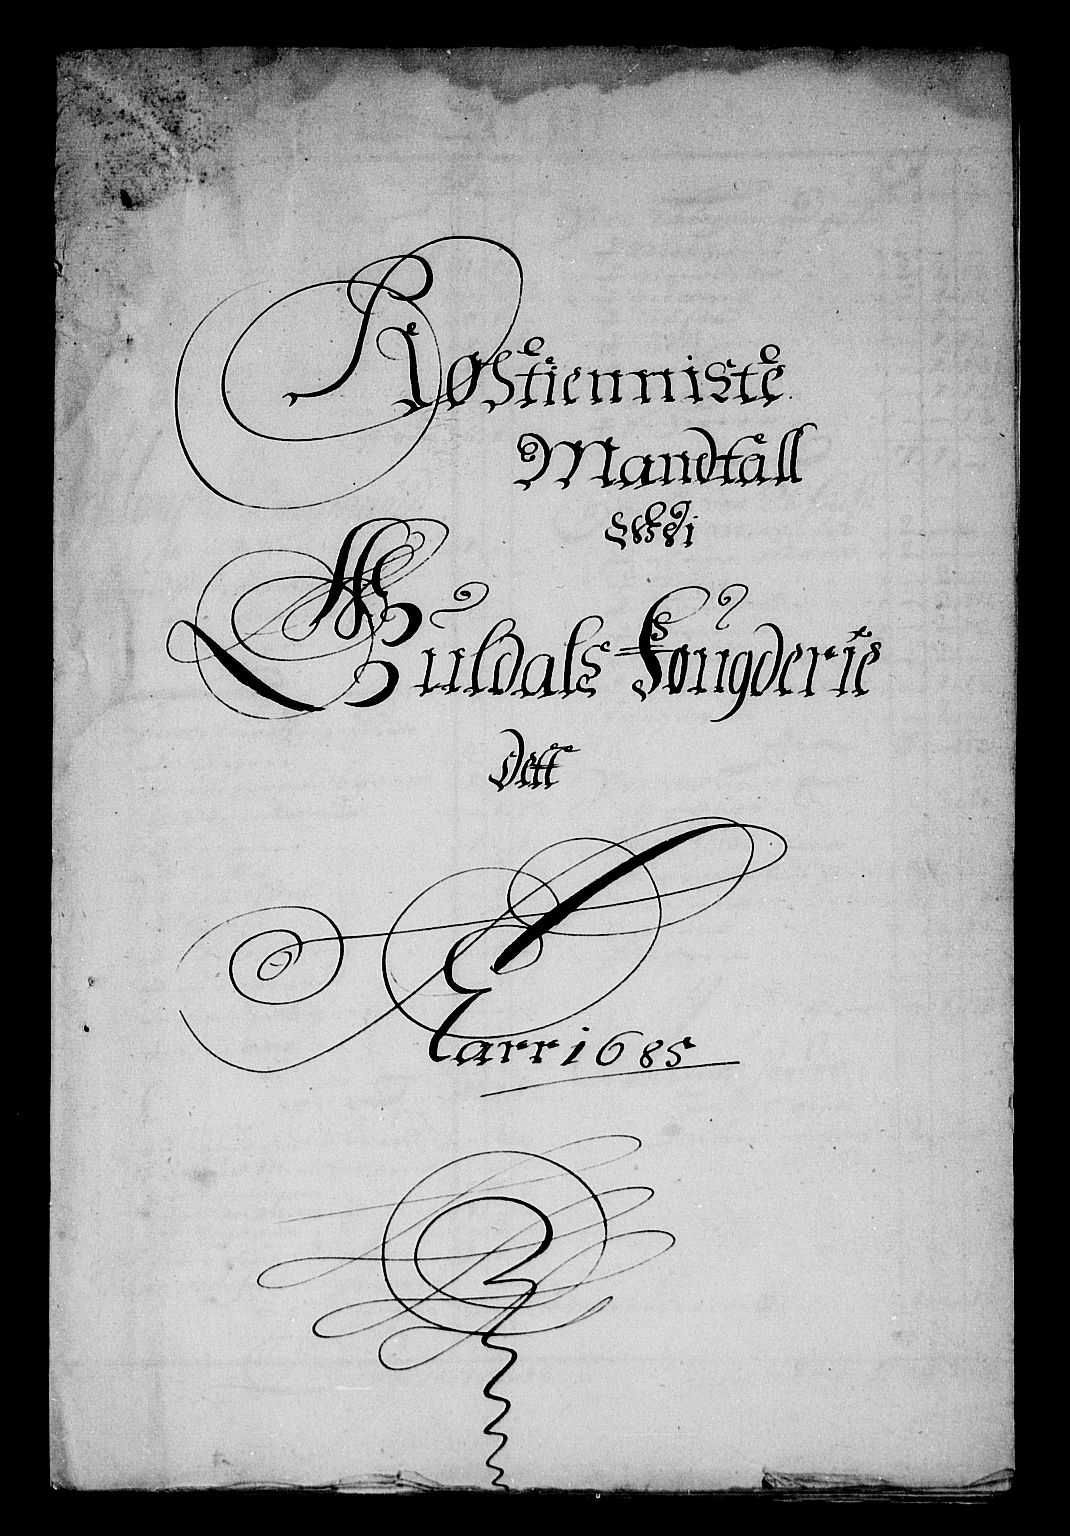 Røstienniste
Mandtall
Guldals Fougderie
Dett
Aarr 1685